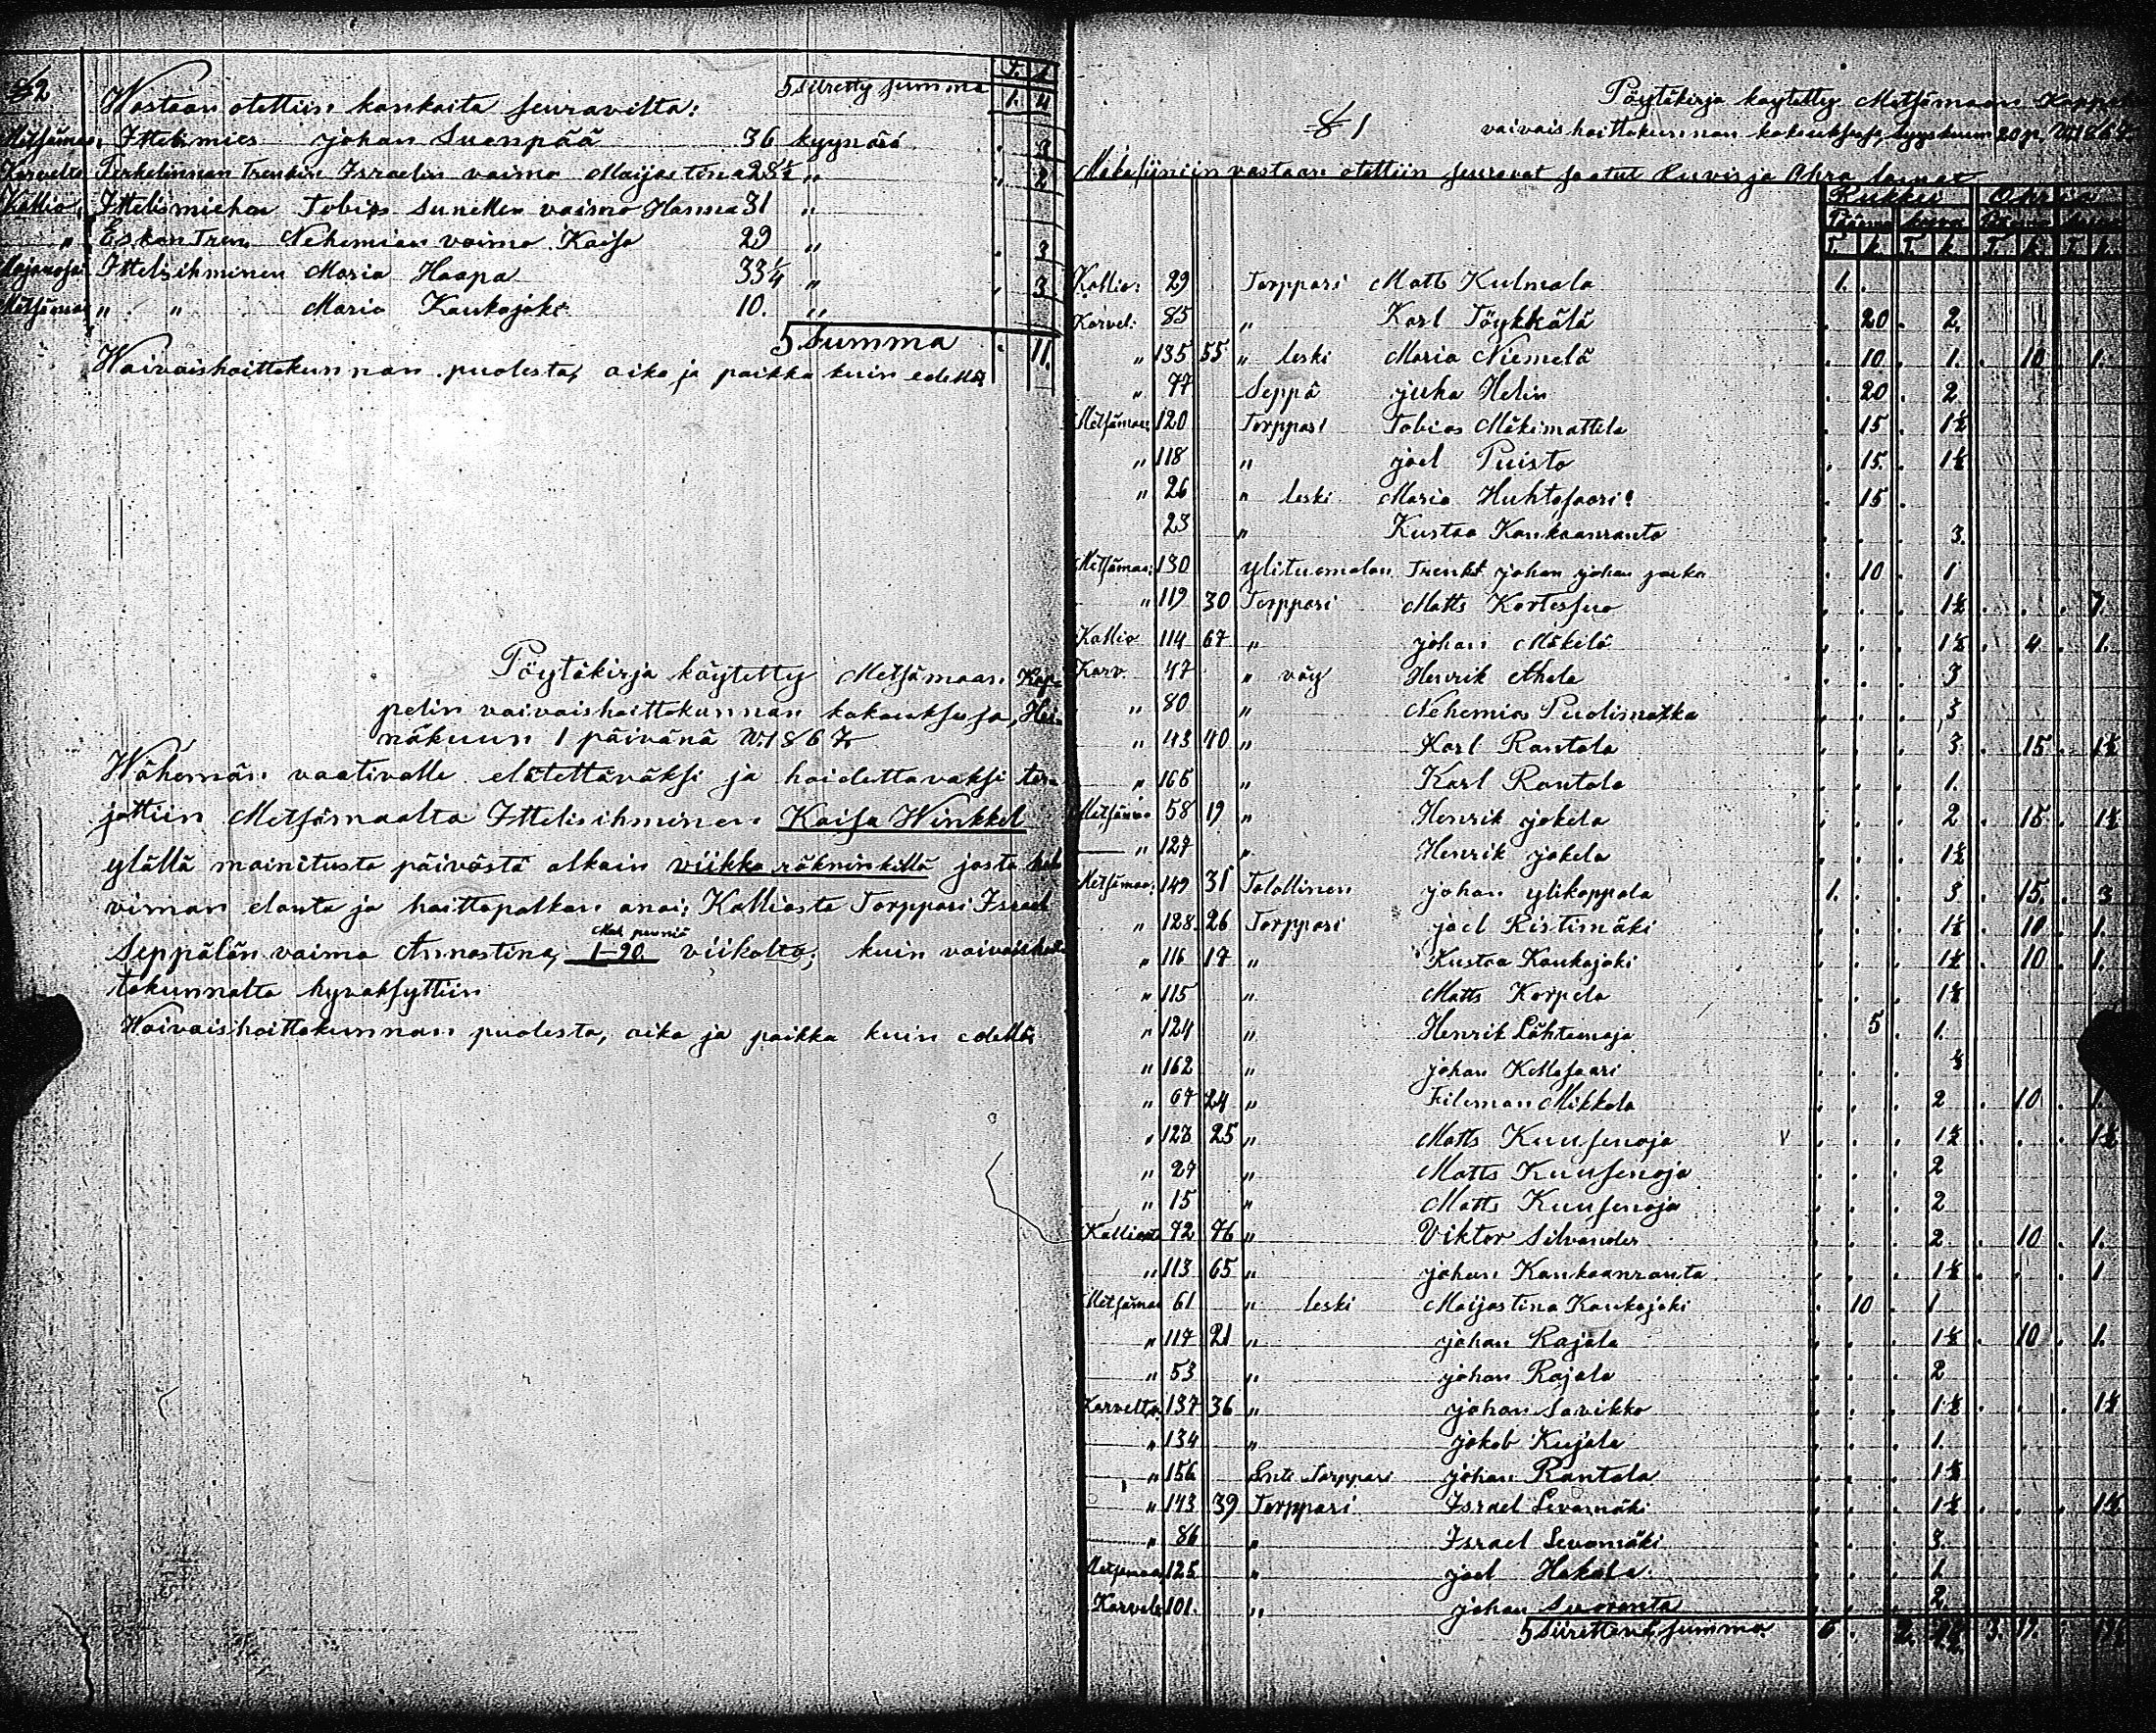 T. k.
§2 Siiretty summa 1. 4
Wastaan otettiin kankaita seuravilta:
Metsämaa: Ittelimies johan Suonpää 36 kyynärä . 3
Karvelta Israelin vaimo Maijastina 28½ „ „ 2
Kallio: Ittelismiehen Tobias vaimo Hanna 31 „
„ Eskon Tren. Nehemian vaimo Kaisa 29 „ . 3
Ittelisihminen Maria Haapa 33¼ „ . 3
Metsämaa „ „ Maria Kaukajoki 10. „
Summa . 11.
Waivaishoittokunnan puolesta, aika ja paikka kuin edellä;
Pöytäkirja käytetty Metsämaan Kap-
pelin vaivaishoittokunnan kokouksesa, Hei-
näkuun 1 päivänä W. 1867.
Wähemän vaativalle elätettäväksi ja hoidettavaksi tar-
jottiin Metsämaalta Ittelisihminen Kaisa Winkkel
ylällä mainitusta päivästä alkain viikko räkninkillä josta
viman elanto ja hoittopalkan anoi; Kalliosta Torppari Israel
Seppälän vaimo Annastina, 1-90 viikolta; kuin vaivaishoit-
tokunnalta hyväksyttiin
Waivaishoittokunnan puolesta, aika ja paikka kuin edellä;
Pöytäkirja kaytetty Metsämaan Kappelin
§ 1 vaivaishoittokunnan kokouksesa, Syyskuun 20 p. W. 1867.
Makasiiniin vastaan otettiin seuravat saatut Ruvis ja Ohra lainat
Rukkii Ohria
T. k. T. k. T. k. T. k.
Kallio: 29 Torppari Matts Kulmala 1. .
Karvel: 85 „ Karl Töykkälä . 20 . 2.
„ 135 55 „ leski Maria Niemelä . 10 . 1. . 10 . 1.
„ 77 Seppä juha Helin . 20 . 2
Metsämaa: 120 Torppari Tobias Mäkimattila . 15 . 1½
„ 118 „ joel Puisto . 15. . 1½
„ 26 „ leski Maria Huhtasaari . 15 .
23 „ Kustaa Kankaanranta . . . 3.
Metsämaa: 130 ylituomolan Trenki johan johan poika . 10 . 1
„ 119 30 Torppari Matts Kortessuo . . . 1½ . . . 7.
Kallio 114 67 „ johan Mäkelä . . . 1½ . 4 . 1.
Karv. 47 „ väy Henrik Ahola . . . 3
„ 80 „ Nehemias Puolimatka . . . 3
„ 43 40 „ Karl Rantala . . . 3 . 15 . 1½
„ 165 „ Karl Rantala . . . 1.
Metsämaa 58 19 „ Henrik jokela . . . 2 . 15 . 1½
„ 127 „ Henrik jokela . . . 1½
Metsämaa: 149 31 Talollinen johan ylikoppala 1. . . 3 . 15. . 3
„ 128. 26 Torppari joel Ristimäki . . . 1½ . 10 . 1.
„ 116 17 „ Kustaa Kaukajoki . . . 1½ . 10 . 1.
„ 115 „ Matts Korpela . . . 1½
„ 124 „ Henrik Lähteenoja . 5 . 1.
„ 162 „ johan Kellosaari ½
„ 67 24 „ Fileman Mikkola . . . 2 . 10 . 1.
„ 123 25 „ Matts Kuusenoja v . . . 1½ . . . 1½
„ 27 „ Matts Kuusenoja . . . 2
„ 15 „ Matts Kuusenoja . . . 2
Kalliosta 72 76 „ Viktor Silvander . . . 2 . 10 . 1.
„ 113 65 „ johan Kankaanranta . . . 1½ . . . 1
Metsämaa 61 „ leski Maijastina Kaukajoki . 10 . 1
„ 117 21 „ johan Rajala . . . 1½ . 10 . 1.
„ 53 „ johan Rajala . . . 2
Karvelta 137 36 „ johan Savikko . . . 1½ . . . 1½
„ 134 „ jakob Kujala . . . 1.
„ 156 Torppari johan Rantala . . . 1½
„ 143 39 Torppari Israel Levamäki . . . 1½ . . . 1½
„ 86 „ Israel Levamäki . . . 3.
Metsämaa 125 „ joel Hakala . . . 1
Karvela 101. „ johan Suoranta . . . 2
Siirettävä summa 6 . 2. 3. 17.